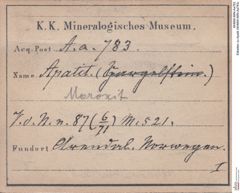 K. K. Mineralogisches Museum.
Acq.-Post A. a. 783.
Name Apatit. (Spargelstein.)
Moroxit
V. O. N. n. 87 (6/71) M. 521.
Fundort Arendal. Norwegen.
I